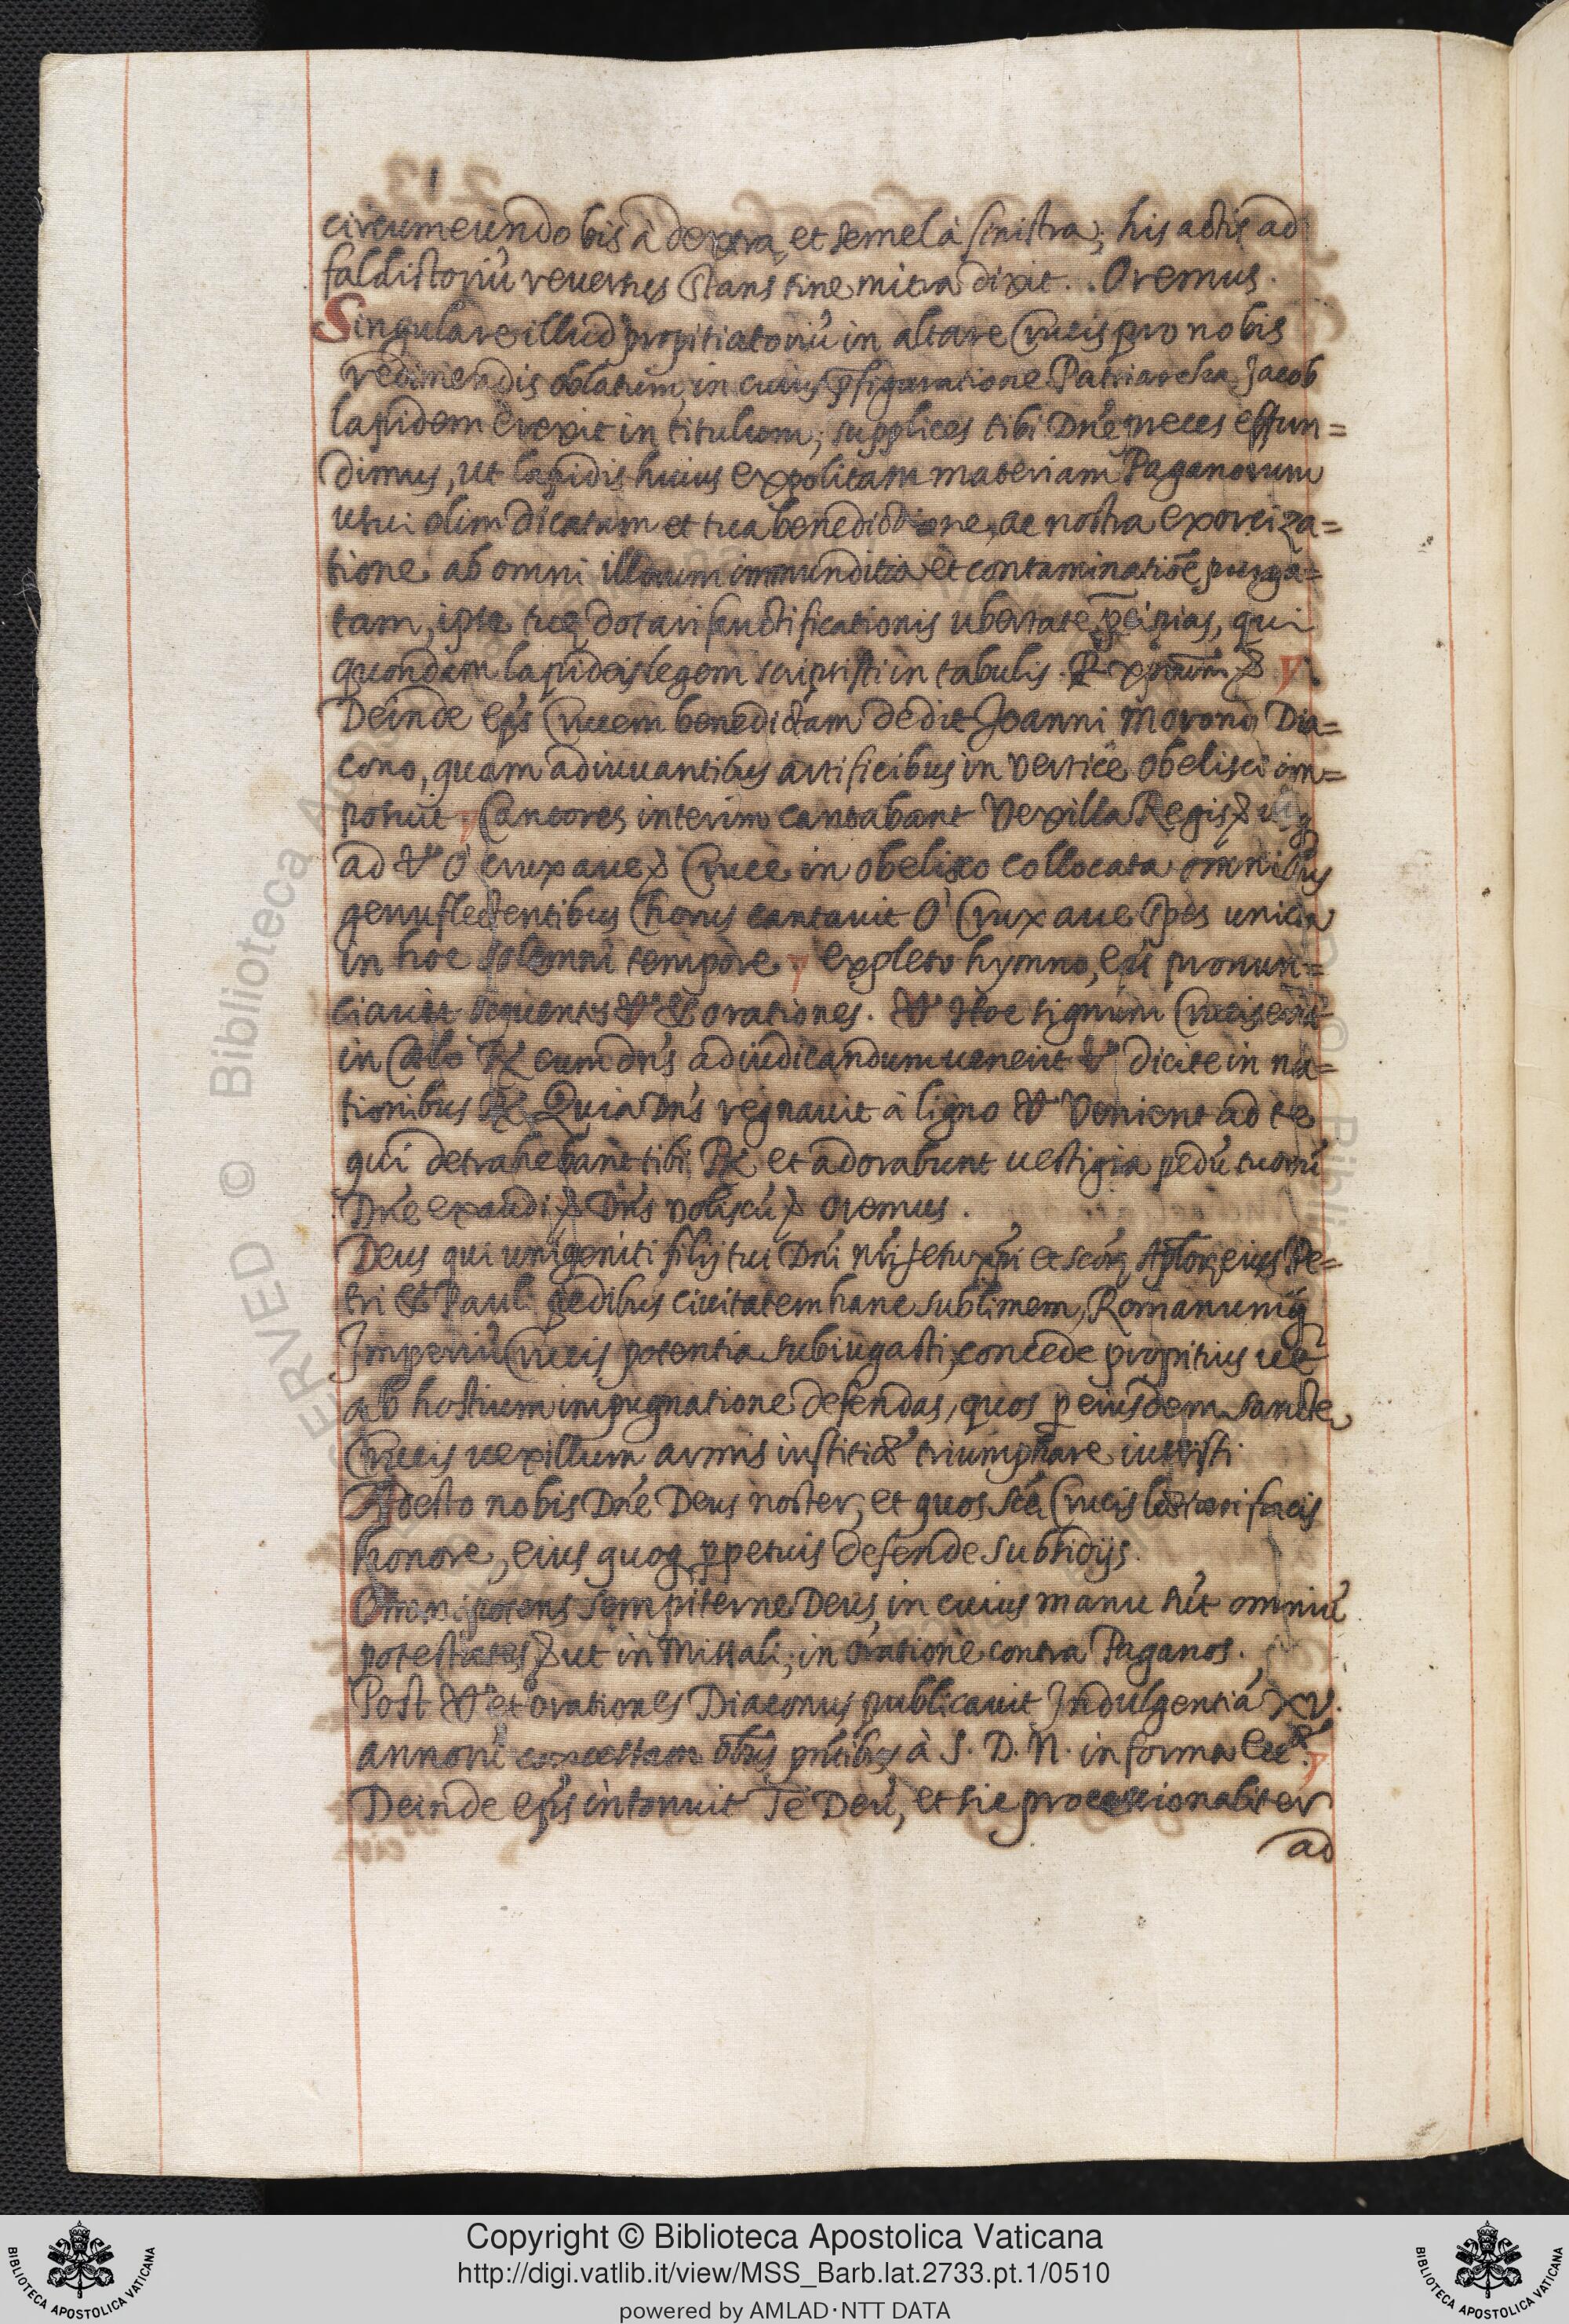 circumeundo bis à dextra, et semel à sinistra; his actis ad
faldistoriũ reuersus stans sine mitra dixit. Oremus.
Singulare illud propitiatoriũ in altare Crucis pro nobis
redimendis oblatum, in cuius p̄figuratione Patriarcha Jacob
lapidem erexit in titulum; supplices tibi Dn̄e preces effun=
dimus, ut lapidis huius expolitam materiam Paganorum
usui olim dicatam et tua benedictione, ac nostra exorciza=
tione ab omni illorum immunditia et contaminatiōe purga=
tam, ipse tuę dotari sanctificationis ubertate p̄cipias, qui
quondam lapideis legem scripsisti in tabulis. P xp̄um &
Deinde ep̄s Crucem benedictam dedit Joanni Morono Dia=
cono, quam adiuuantibus artificibus in vertice obelisci im=
posuit Cantores interim cantabant Vexilla Regis & usq
ad ℣ O crux aue & Cruce in obelisco collocata omnibus
genuflectentibus Chorus cantauit O Crux aue spes unica
in hoc solemni tempore. expleto hymno, ep̄s pronun=
ciauit sequentes ℣ et orationes. ℣ Hoc signum Crucis erit
in Cælo ℟ cum dn̄s ad iudicandum uenerit ℣ dicite in na=
tionibus ℟ Quia Dn̄s regnauit à ligno ℣ Venient ad te
qui detrahebant tibi ℟ et adorabunt uestigia pedũ tuorũ
Dn̄e exaudi & Dn̄s vobiscũ & Oremus.
Deus qui unigeniti filij tui Dn̄i nr̄i Jesu xp̄i et scōrꝝ Apl̄orꝝ eius Pe=
tri et Pauli pedibus ciuitatem hanc sublimem, Romanumq
Imperiũ Crucis potentia subiugasti, concede propitius ut
ab hostium impugnatione defendas, quos p eiusdem sancte
Crucis uexillum armis iustitiæ triumphare iussisti.
Adesto nobis Dn̄e Deus noster, et quos scē Crucis lætari facis
honore, eius quoq ppetuis defende subsidijs.
Omnipotens sempiterne Deus, in cuius manu sũt omniũ
potestates & ut in Missali, in oratione contra Paganos.
Post ℣ et orationes Diaconus publicauit Indulgentiã XV.
annorũ concessam à S. D. N. in forma Ecc.æ
Deinde ep̄s intonuit Te Deũ, et sic processionaliter
ad
Copyright © Biblioteca Apostolica Vaticana
http://digi.vatlib.it/view/MSS_Barb.lat.2733.pt.1/0510
powered by AMLAD·NTT DATA
BIBLIOTECA APOSTOLICA VATICANA
BIBLIOTECA APOSTOLICA VATICANA